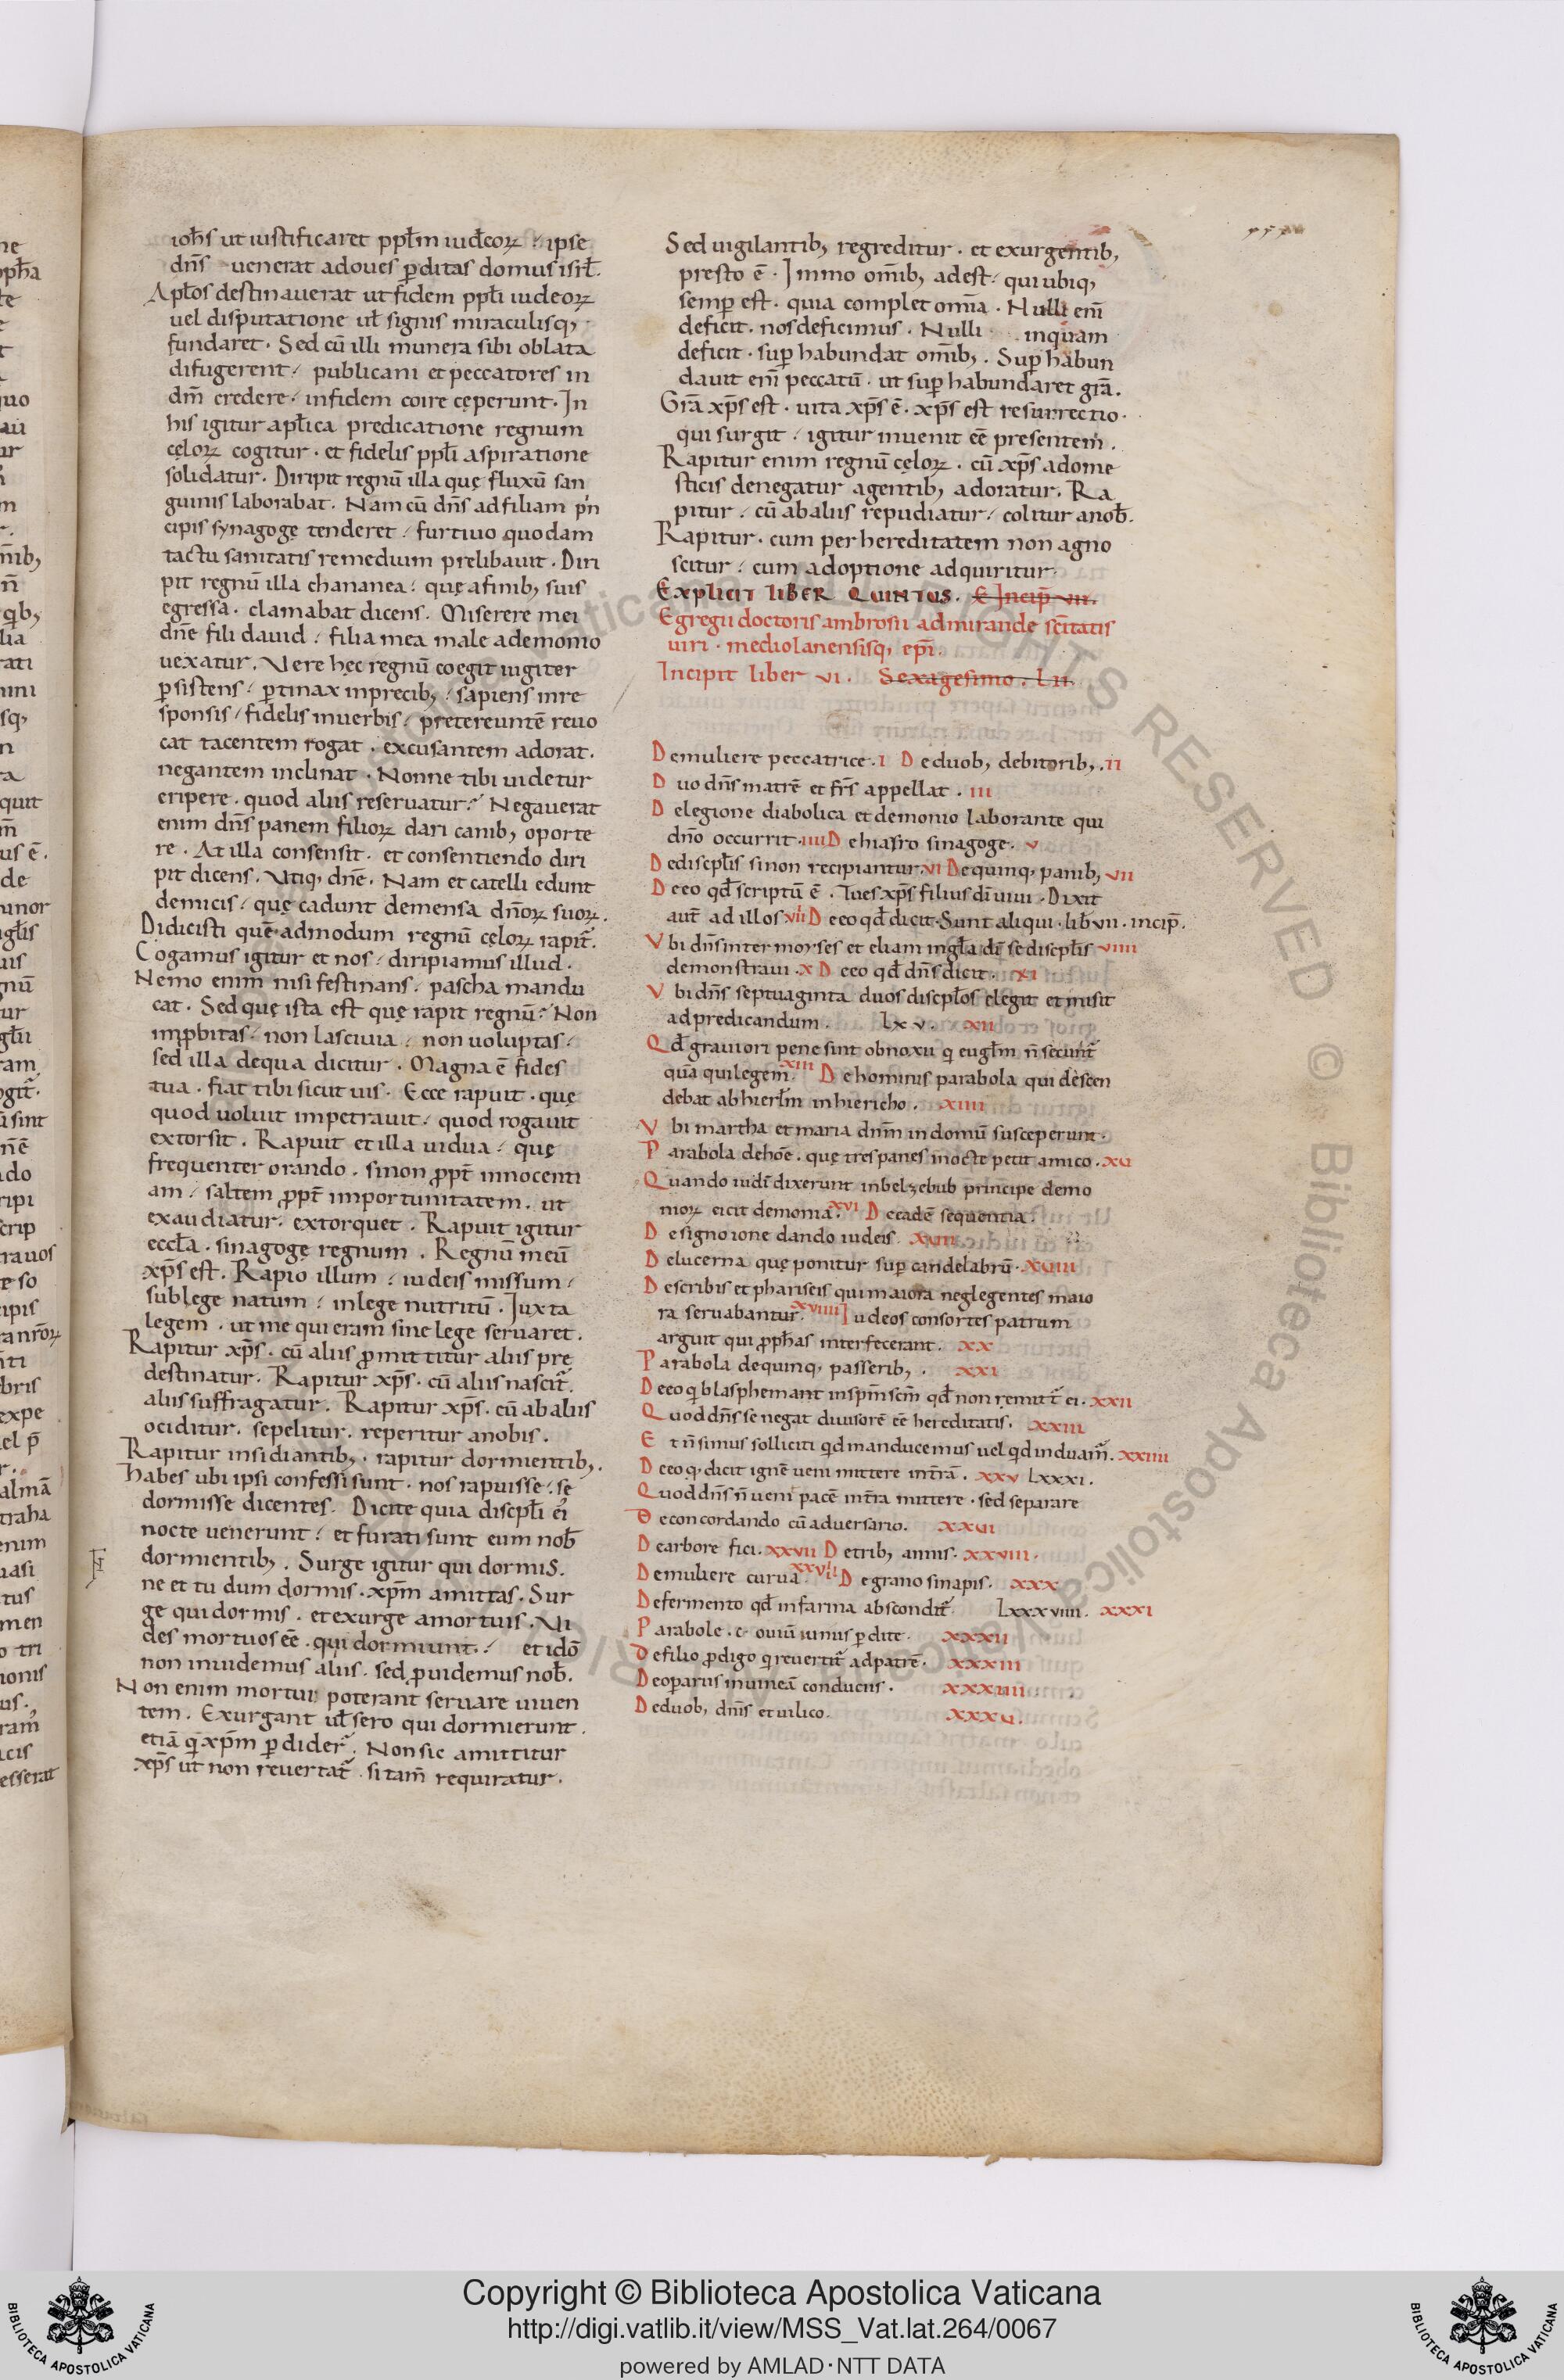 ioh̄s ut iustificaret ppl̄m iudeoꝝ / ipse
dn̄s uenerat adoues ꝑditas domus isrl̄.
Apl̄os destinauerat ut fidem ppl̄i iudeoꝝ
uel disputatione ul̄ signis miraculisq;
fundaret. Sed cū illi munera sibi oblata
difugerent / publicani et peccatores in
dm̄ credere / infidem coire cęperunt. In
his igitur apl̄ica predicatione regnum
cęloꝝ cogitur. et fidelis ppl̄i aspiratione
solidatur. Diripit regnū illa quę fluxū san
guinis laborabat. Nam cū dn̄s ad filiam pin
cipis synagogę tenderet / furtiuo quodam
tactu sanitatis remedium prelibauit. Diri
pit regnū illa chananea / quę afinib; suis
egressa. clamabat dicens. Miserere mei
dn̄e fili dauid / filia mea male ademonio
uexatur. Vere hęc regnū coegit iugiter
ꝑsistens / ꝑtinax inprecib; / sapiens inre
sponsis / fidelis inuerbis / pretereuntē reuo
cat tacentem rogat. excusantem adorat.
negantem inclinat. Nonne tibi uidetur
eripere. quod aliis reseruatur? Negauerat
enim dn̄s panem filioꝝ dari canib; oporte
re. At illa consensit. et consentiendo diri
pit dicens. Utiq; dn̄e. Nam et catelli edunt
demicis / quę cadunt demensa dn̄oꝝ suoꝝ.
Didicisti quē admodum regnū cęloꝝ rapit̄.
Cogamus igitur et nos / diripiamus illud.
Nemo enim nisi festinans / pascha mandu
cat. Sed quę ista est quę rapit regnū? Non
imꝓbitas / non lasciuia / non uoluptas /
sed illa dequa dicitur. Magna ē fides
tua. fiat tibi sicut uis. Ecce rapuit. quę
quod uoluit impetrauit / quod rogauit
extorsit. Rapuit et illa uidua / quę
frequenter orando. sinon ꝓpt̄ innocenti
am / saltem ꝓpt̄ importunitatem. ut
exaudiatur. extorquet. Rapuit igitur
eccl̄a. sinagogę regnum. Regnū meū
xp̄s est. Rapio illum / iudeis missum /
sublege natum / inlege nutritū. Iuxta
legem. ut me qui eram sine lege seruaret.
Rapitur xp̄s. cū aliis ꝓmittitur aliis prę
destinatur. Rapitur xp̄s. cū aliis nascit̄.
aliis suffragatur. Rapitur xp̄s. cū ab aliis
occiditur. sepelitur. reperitur anobis.
Rapitur insidiantib; . rapitur dormientib; .
habes ubi ipsi confessi sunt. nos rapuisse / se
dormisse dicentes. Dicite quia discipl̄i ei
nocte uenerunt / et furati sunt eum nob̄
dormientib; . Surge igitur qui dormis.
ne et tu dum dormis. xp̄m amittas. Sur
ge qui dormis. et exurge amortuis. Vi
des mortuos ēē. qui dormiunt. / et idō
non inuidemus aliis. sed ꝓuidemus nob̄.
Non enim mortui poterant seruare uiuen
tem. Exurgant ul̄ sero qui dormierunt.
etiā qi xp̄m ꝑdider̄. Non sic amittitur
xp̄s ut non reuertat̄. si tam̄ requiratur.
Sed uigilantib; regreditur. et exurgentib;
presto ē. Immo om̄ib; adest / qui ubiq;
semꝑ est. quia complet om̄ia. Nulli eni̅
deficit. nos deficimus. Nulli inquam
deficit. suꝑ habundat om̄ib; . Suꝑ habun
dauit eni̅ peccatū. ut suꝑ habundaret gr̄a.
Gr̄a xp̄s est. uita xp̄s ē. xp̄s est resurrectio.
qui surgit / igitur inuenit ēē presentem.
Rapitur enim regnū cęloꝝ. cū xp̄s adome
sticis denegatur agentib; adoratur. Ra
pitur / cū ab aliis repudiatur / colitur anob̄.
Rapitur. cum per hereditatem non agno
scitur / cum adoptione adquiritur.
Explicit liber quintus. & Incip̄ vii.
Egregii doctoris ambrosii admirande sc̄itatis
uiri. mediolanensisq; ep̄i.
Incipit liber vi. Sexagesimo. Lii.
Demuliere peccatrice. i Deduob; debitorib; . ii
Duo dn̄s matrē et fr̄s appellat. iii
Delegione diabolica et demonio laborante qui
dn̄o occurrit. iiii De hiairo sinagoge. v
Dediscipl̄is sinon recipiantur. vi Dequinq; panib; vii
Deeo qd̄ scriptū ē. Tu es xp̄s filius di̅ uiui. Dixit
aut̄ ad illos viii Deeo qd̄ dicit. Sunt aliqui. lib̄ vii. incip̄.
Vbi dn̄s inter moyses et eliam ingl̄a di̅ se discipl̄is viiii
demonstraui. x Deeo qd̄ dn̄s dicit. xi
Vbi dn̄s septuaginta duos discipl̄os elegit et misit
ad predicandum. Lxv. xii
Qd̄ grauiori pene sint obnoxii qi eugl̄m n̄ secunt̄
quā qui legem. xiii De hominis parabola qui descen
debat ab hierl̄m in hiericho. xiiii
Vbi martha et maria dnm̄ in domū susceperunt.
Parabola dehoe̅. quę tres panes in̄octe petit amico. xv
Quando iudi̅ dixerunt inbelzebub principe demo
nioꝝ eicit demonia. xvi Decadē sequentia.
Designo ione dando iudeis. xvii
Delucerna quę ponitur suꝑ candelabrū. xviii
Describis et phariseis qui maiora neglegentes maio
ra seruabantur. xviiii Iudeos consortes patrum
arguit qui ꝓph̄as interfecerant. xx
Parabola dequinq; passerib; . xxi
Deeo qi blasphemant inspm̄ sc̄m qd̄ non remitt̄ ei. xxii
Quod dn̄s se negat diuisorē ēē hereditatis. xxiii
Et n̄ simus solliciti qid manducemus uel qid induam̄. xxiiii
Deeo q; dicit ignē ueni mittere int̄rā. xxv Lxxxi.
Quod dn̄s n̄ ueni pacē int̄ra mittere. sed separare
Deconcordando cū aduersario. xxvi
Dearbore fici. xxvii Detrib; annis. xxviii.
Demuliere curua. xxviiii Degrano sinapis. xxx
Defermento qd̄ infarina abscondit̄. Lxxxviiii. xxxi
Parabole. c. ouiū unius ꝑdite. xxxii
Defilio ꝓdigo qi reuertit̄ ad patrē. xxxiii
Deoperariis inuineā conductis. xxxiiii
Deduob; dn̄is et uilico. xxxv.
Copyright © Biblioteca Apostolica Vaticana
http://digi.vatlib.it/view/MSS_Vat.lat.264/0067
powered by AMLAD·NTT DATA
BIBLIOTECA APOSTOLICA VATICANA
BIBLIOTECA APOSTOLICA VATICANA